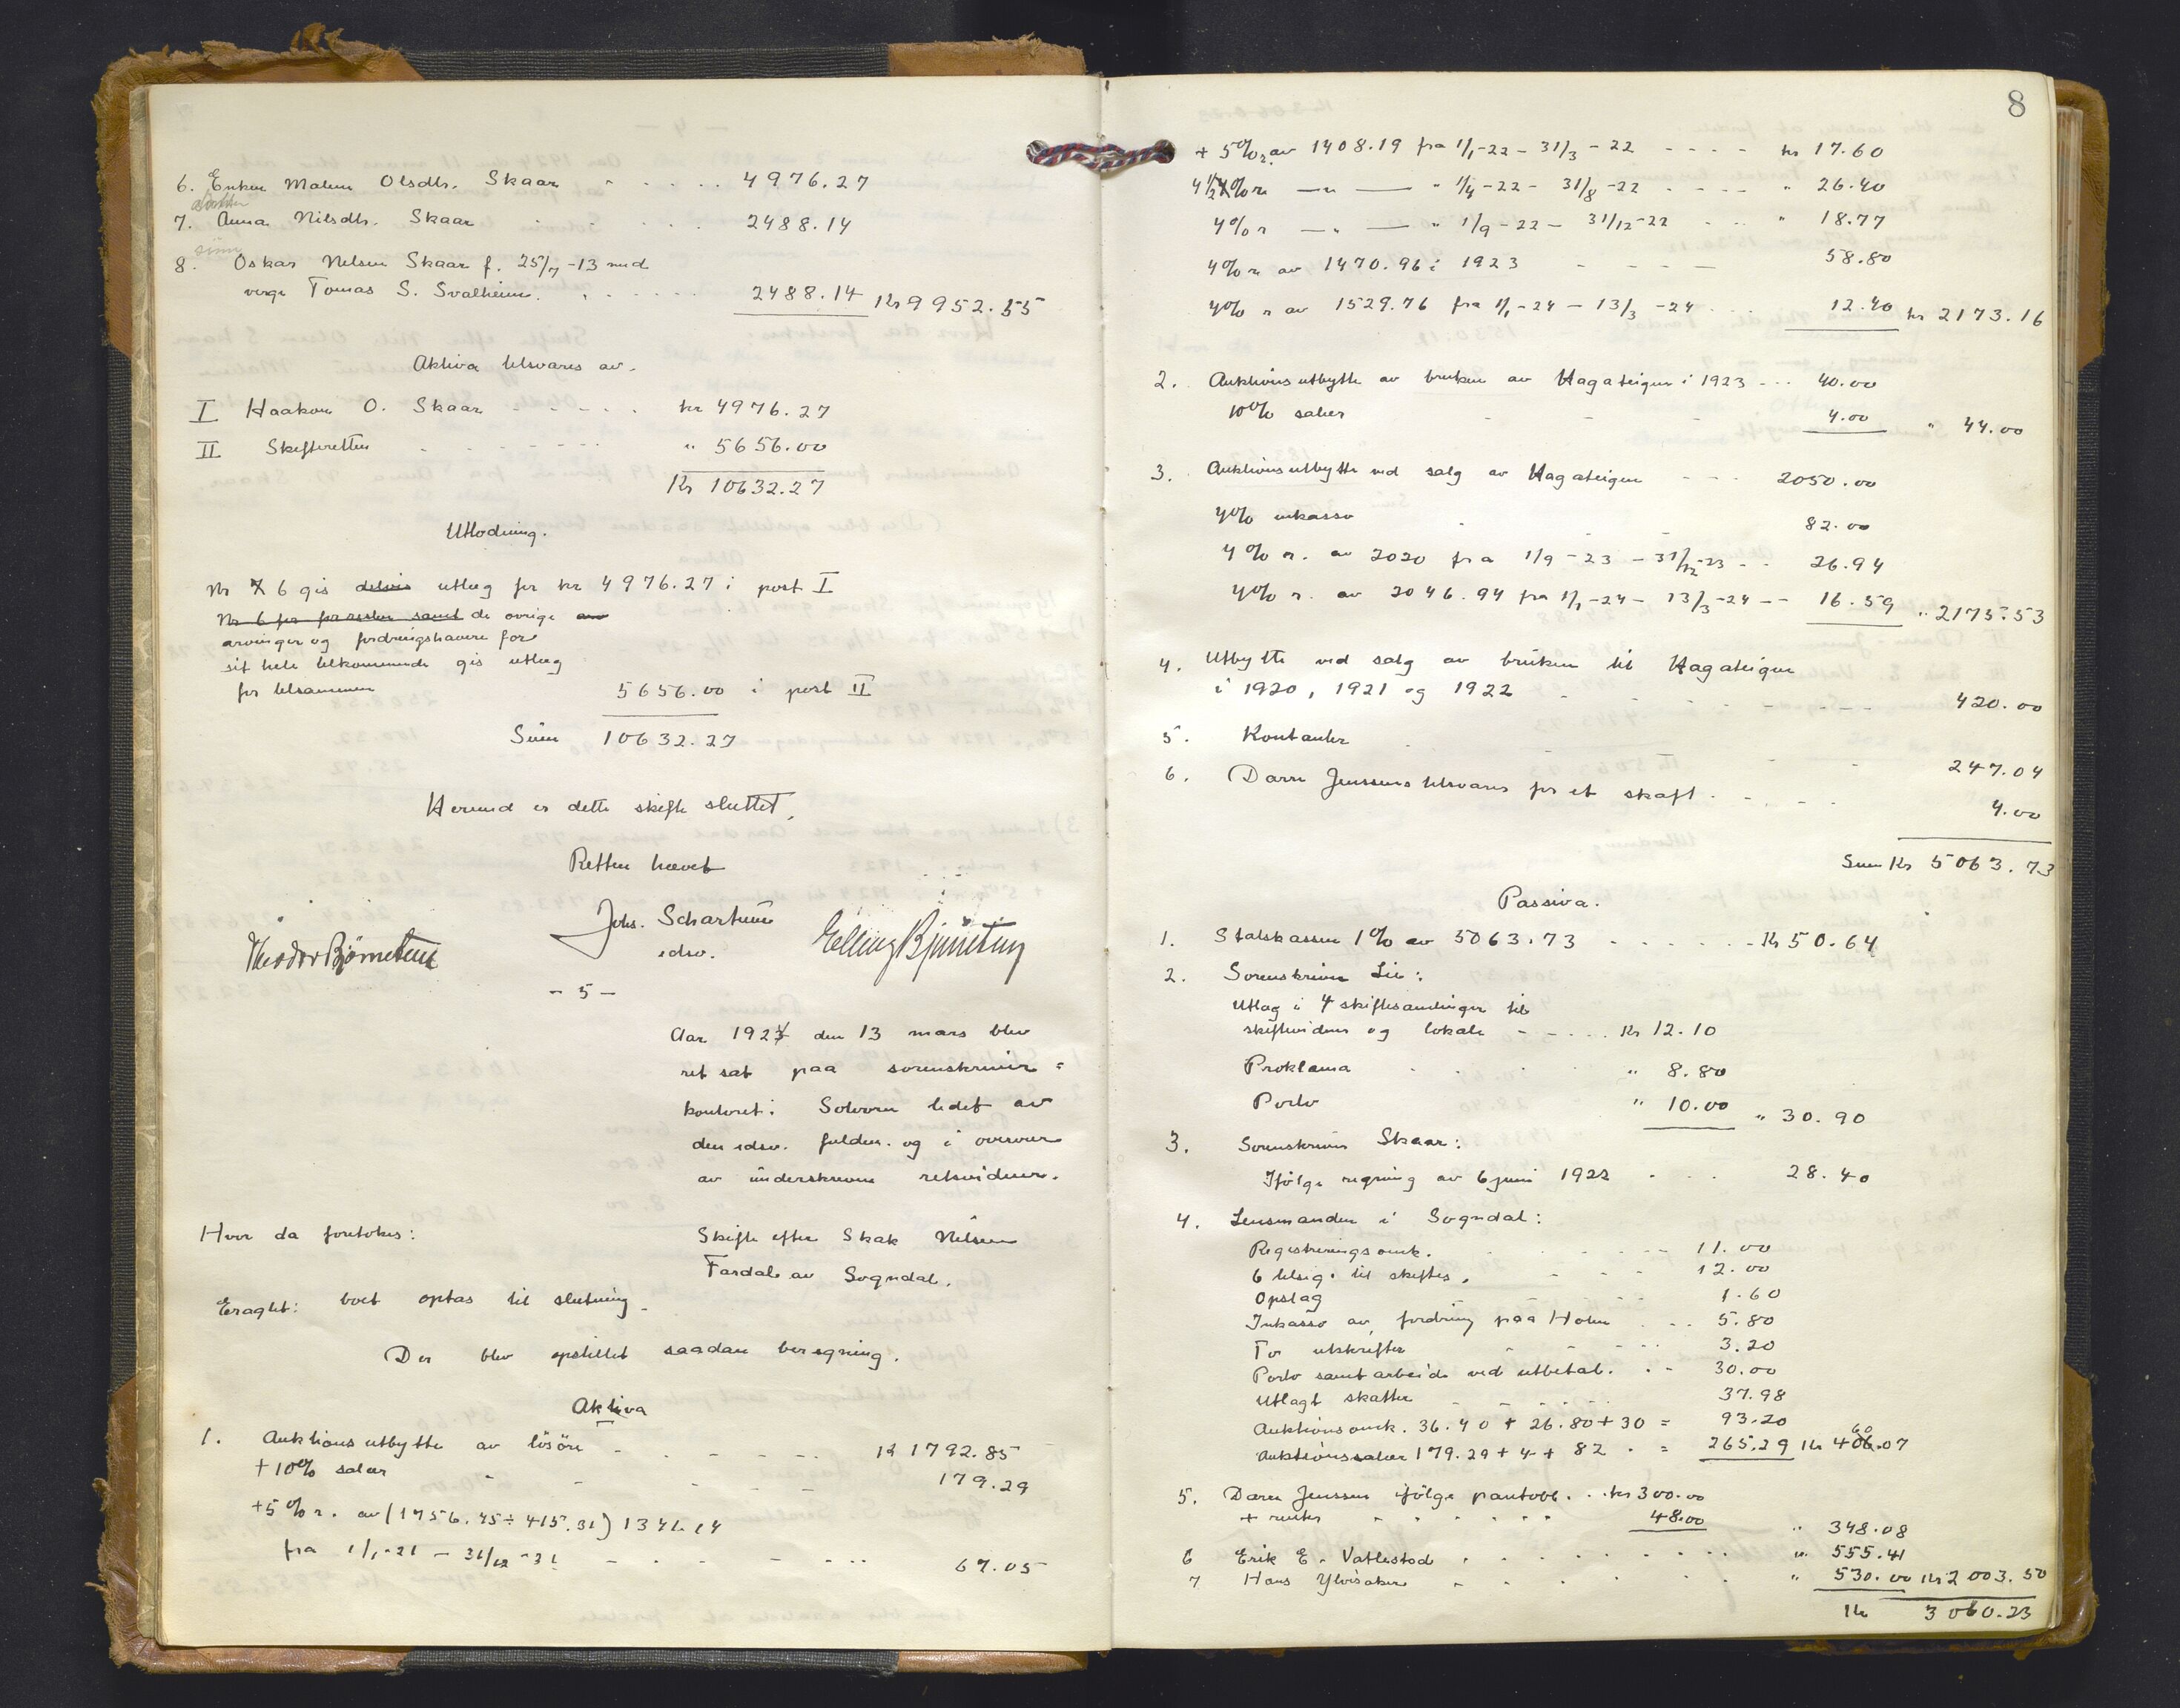 6. Enken Malene Olsdtr. Skaar - . . . . 4976.27
datter
7. Anna Nilsdtr. Skaar . . . . 2488.14
sønn
8. Oskar Nilsen Skaar f. 25/7-13 med
verge Tomas S. Svalheim. . . . . . 2488.14 Kr 9952.55
Aktiva tilsvares av.
I Haakon O. Skaar - - - - . kr 4976.27
II Skifteretten . . - - - - " 5656.00
Kr 10632.27
Utlodning.
Nr 6 gis delvis utlæg for kr 4976.27 i post I
Nr 6 for for resten samt de øvrige av
arvinger og fordringshavere for
sit hele tilkommende gis utlæg
for tilsammen 5656.00 i post II
Sum 10632.27
Hermed er dette skifte sluttet,
Retten hævet
Johs. Schartum
edsv.
Theodor Bjørnetun
Elling Bjørnetun
- 5 -
Aar 1924 den 13 mars blev
ret sat paa sorenskriver=
kontoret i Solvorn ledet av
den edsv. fuldm. og i overvær
av underskrevne retsvidner.
Hvor da foretokes: Skifte efter Skak Nilsen
Fardal av Sogndal.
Eragtet: boet optas til slutning.
Der blev opstillet saadan beregning.
Aktiva
1. Auktionsutbytte av løsøre - . - - - . . . kr 1792.85
+ 10% salær - - - - 179.29
+ 5% r. av (1756.45 ÷ 415.31) 1341.14
fra 1/1-21 - 31/12-21 - . - - . . . 67.05
8
+ 5% r. av 1408.19 fra 1/1-22 - 31/3-22 - - - - kr 17.60
4 1/2% r. — " — " 1/4-22 - 31/8-22 - - - - " 26.40
4% r — " — " 1/9-22 - 31/12-22 - . . " 18.77
4% r. av 1470.96 i 1923 - - - - 58.80
4% r av 1529.76 fra 1/1-24 - 13/3-24 . . . 12.40 kr 2173.16
2. Auktionsutbytte av bruken av Hagateigen i 1923 - - - 40.00
10% salær - - - 4.00 " 44.00
3. Auktionsutbytte ved salg av Hagateigen - - - 2050.00
4% inkasso . - - 82.00
4% r. av 2020 fra 1/9-23 - 31/12-23 - - 26.94
4% r. av 2046.94 fra 1/1-24 - 13/3-24 - - 16.59 " 2175.53
4. Utbytte ved salg av bruken til Hagateigen
i 1920, 1921 og 1922 - . - - - - - - 420.00
5. Kontanter . - - 247.04
6. Darre Jenssens tilsvarer for et skaft . - . - - 4.00
Sum Kr 5063.73
Passiva.
1. Statskassen 1% av 5063.73 - - - - - - Kr 50.64
2. Sorenskriver Lie:
Utlag i 4 skiftesamlinger til
skiftevidner og lokale - - . . . Kr 12.10
Proklama . . . . " 8.80
Porto " 10.00 " 30.90
3. Sorenskriver Skaar:
Ifølge regning av 6 juni 1922 . . . 28.40
4. Lensmanden i Sogndal:
Registreringsomk. . . . - - 11.00
6 tilsig. til skiftes. - - - 12.00
Opslag 1.60
Inkasso av fordring paa Holm . - - 5.80
For utskrifter - - - - 3.20
Porto samt arbeide ved utbetal. . - 30.00
Utlagt skatter - - . . . 37.98
Auktionsomk. 36.40 + 26.80 + 30 = 93.20
Auktionssalær 179.29 + 4 + 82 . = 265.29 Kr 460.07
5. Darre Jenssen ifølge pantobl. . . kr 300.00
+ renter . . . . . . 48.00 " 348.08
6 Erik E. Vatlestad . . . . . . . . " 555.41
7 Hans Ylvisaker - . . . . . " 530.00 Kr 2003.50
Kr 3060.23